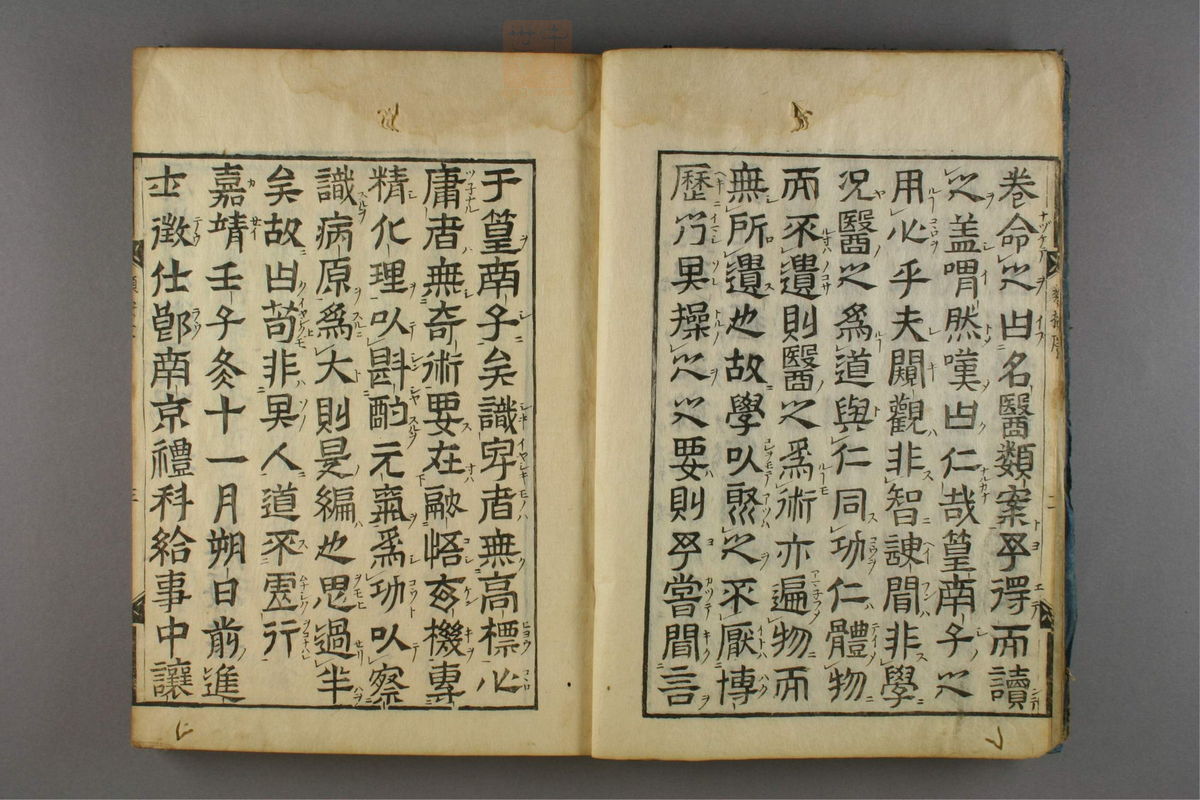 卷命之曰名醫類案予得而讀
之蓋喟然嘆曰仁哉篁南子之
用心乎夫闚觀非智諌聞非學
况醫之爲道與仁同功仁體物
而不遺則醫之爲術亦遍物而
無所遺也故學以聚之不厭博
歷以乃果操之之要則予嘗聞言
于篁南子矣識字者無高標心
庸者無奇術要在融悟玄機專
精化理以斟酌元氣爲功以察
識病原爲大則是編也思過半
矣故曰苟非其人道不虛行
嘉靖壬子冬十一月朔日前進
士徵仕郎南京禮科給事中讓